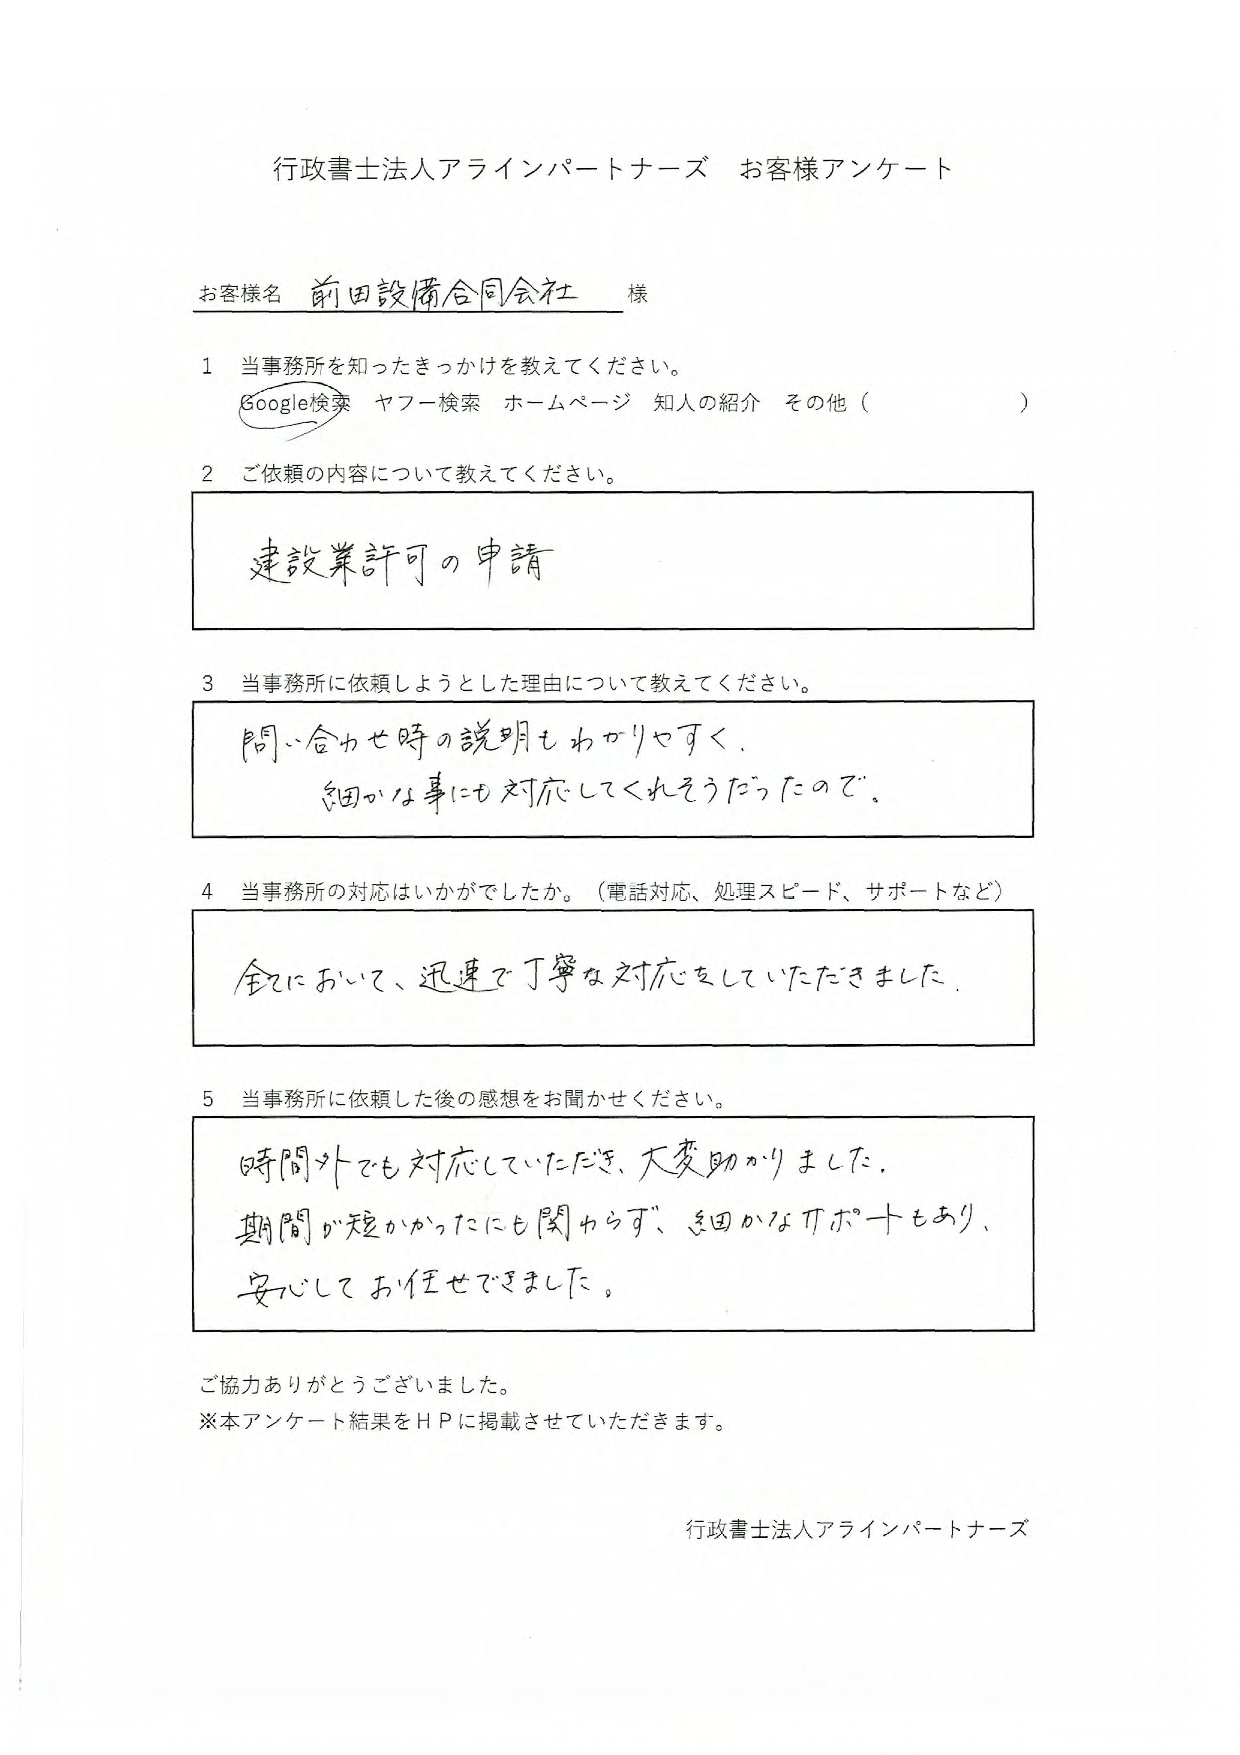 行政書士法人アラインパートナーズ　お客様アンケート
お客様名　前田設備合同会社　様
1　当事務所を知ったきっかけを教えてください。
Google検索　ヤフー検索　ホームページ　知人の紹介　その他（　　　　　　　）
2　ご依頼の内容について教えてください。
建設業許可の申請
3　当事務所に依頼しようとした理由について教えてください。
問い合わせ時の説明もわかりやすく、
細かな事にも対応してくれそうだったので。
4　当事務所の対応はいかがでしたか。（電話対応、処理スピード、サポートなど）
全てにおいて、迅速で丁寧な対応をしていただきました。
5　当事務所に依頼した後の感想をお聞かせください。
時間外でも対応していただき、大変助かりました。
期間が短かかったにも関わらず、細かなサポートもあり、
安心してお任せできました。
ご協力ありがとうございました。
※本アンケート結果をＨＰに掲載させていただきます。
行政書士法人アラインパートナーズ